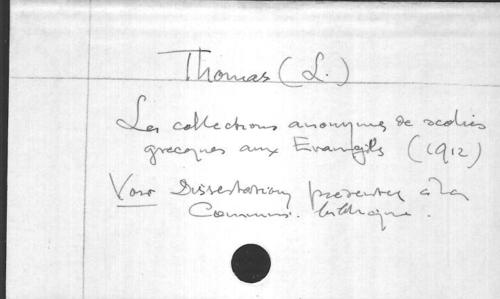 Thomas (L.)
Les collections anonymes de scolies
grecques aux Evangiles (1912)
Voir Dissertations présentées à la
Commis. biblique.